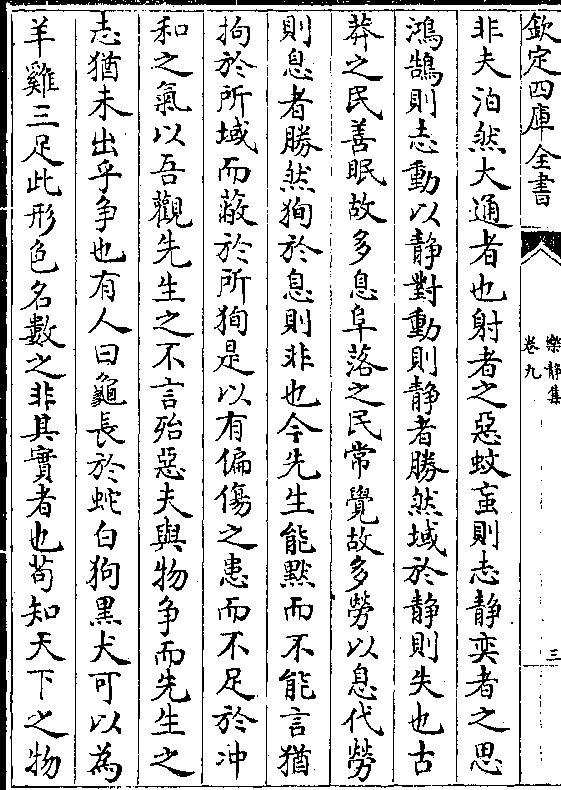 欽定四庫全書
樂靜集
卷九
三
非夫泊然大通者也射者之惡蚊䖟則志靜奕者之思
鴻鵠則志動以靜對動則靜者勝然域於靜則失也古
莽之民善眠故多息阜落之民常覺故多勞以息代勞
則息者勝然狥於息則非也今先生能黙而不能言猶
拘於所域而蔽於所狥是以有偏傷之患而不足於冲
和之氣以吾觀先生之不言殆惡夫與物争而先生之
志猶未出乎争也有人曰龜長於蛇白狗黒犬可以為
羊雞三足此形色名數之非其實者也苟知天下之物